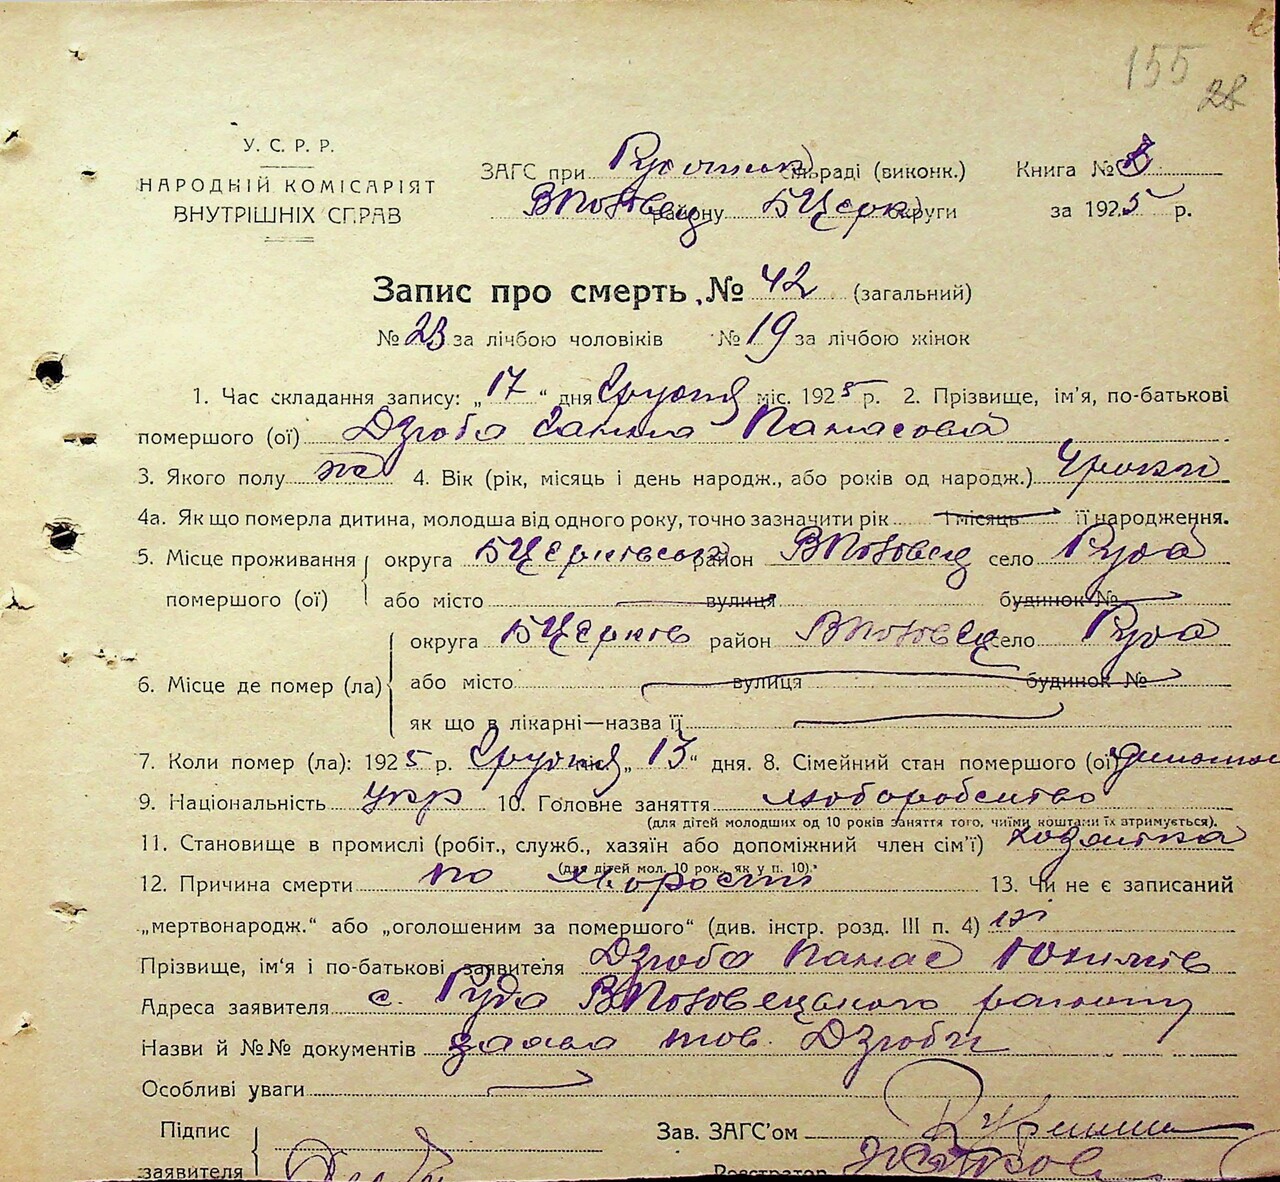 155
28
У. С. Р. Р.
НАРОДНІЙ КОМІСАРІЯТ
ВНУТРІШНІХ СПРАВ
ЗАГС при сільраді (виконк.)
району БЦерк округи
Книга №
за 1925 р.
Запис про смерть № 42 (загальний)
№ 23 за лічбою чоловіків № 19 за лічбою жінок
1. Час складання запису: „17“ дня Грудня міс. 1925 р. 2. Прізвище, ім'я, по-батькові
помершого (ої) Дзюба Ганна Панасова
3. Якого полу жі 4. Вік (рік, місяць і день народж., або років од народж.) 4 роки
4а. Як що померла дитина, молодша від одного року, точно зазначити рік і місяць її народження.
5. Місце проживання округа БЦерківська район ВПоловец село Руда
помершого (ої) або місто вулиця будинок №
округа БЦерків район ВПоловец село Руда
6. Місце де помер (ла) або місто вулиця будинок №
як що в лікарні—назва її
7. Коли помер (ла): 1925 р. Грудня міс. „13“ дня. 8. Сімейний стан помершого (ої)
9. Національність укр 10. Головне заняття хлоборобство
(для дітей молодших од 10 років заняття того, чиїми коштами їх втримується).
11. Становище в промислі (робіт., служб., хазяїн або допоміжний член сім'ї)
(для дітей мол. 10 рок. як у п. 10).
12. Причина смерти по хворості 13. Чи не є записаний
„мертвонародж.“ або „оголошеним за помершого“ (див. інстр. розд. III п. 4) ні
Прізвище, ім'я і по-батькові заявителя Дзюба Панас Юхимів
Адреса заявителя с. Руда ВПоловецького району
Назви й №№ документів заява тов. Дзюби
Особливі уваги
Підпис
заявителя
Зав. ЗАГС'ом
Реєстратор